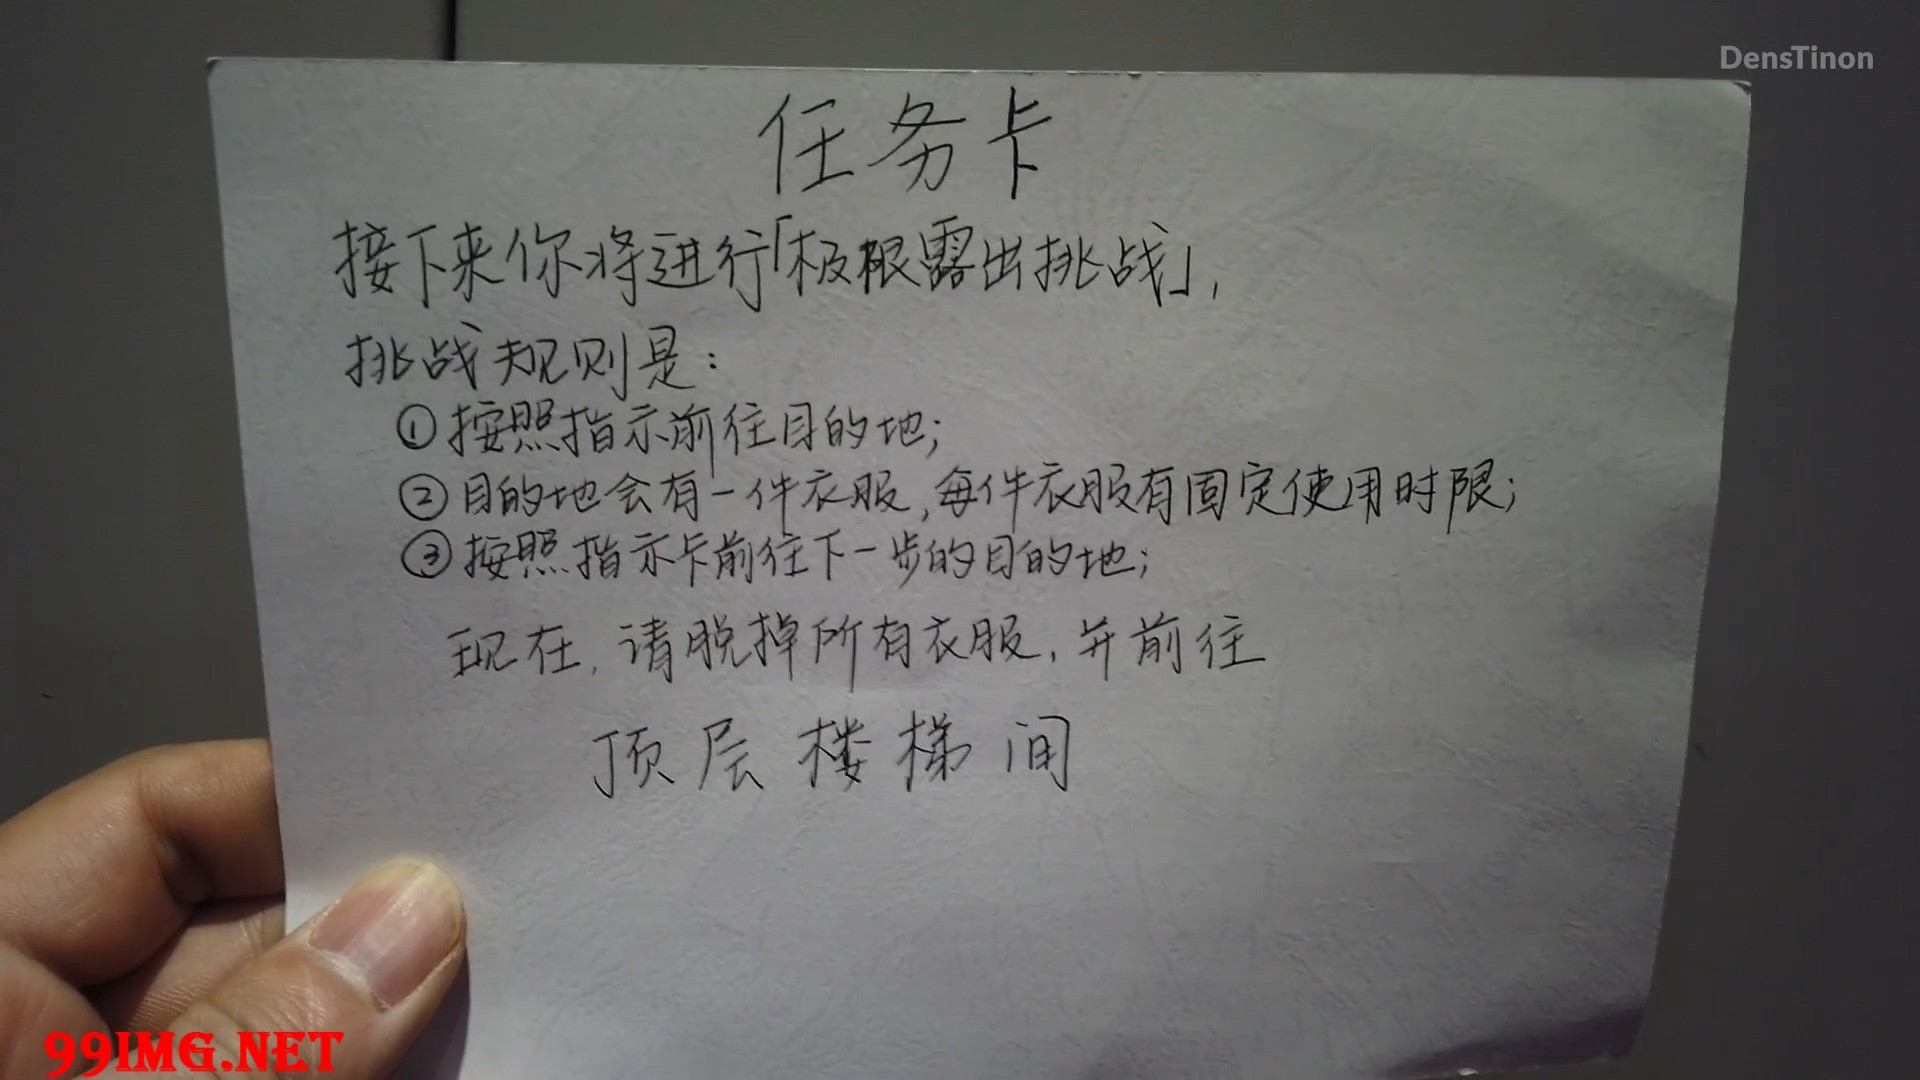 DensTinon
任务卡
接下来你将进行「极限露出挑战」,
挑战规则是:
①按照指示前往目的地;
②目的地会有一件衣服,每件衣服有固定使用时限;
③按照指示卡前往下一步的目的地;
现在,请脱掉所有衣服,并前往
顶层楼梯间
99IMG.NET